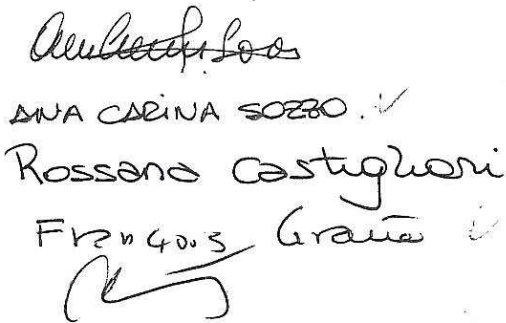 ANA CARINA SOZZO. ✓
Rossana Castiglioni
François Graña ✓